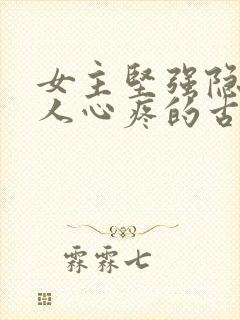 女主坚强隐
人心疼的古
霖霖七